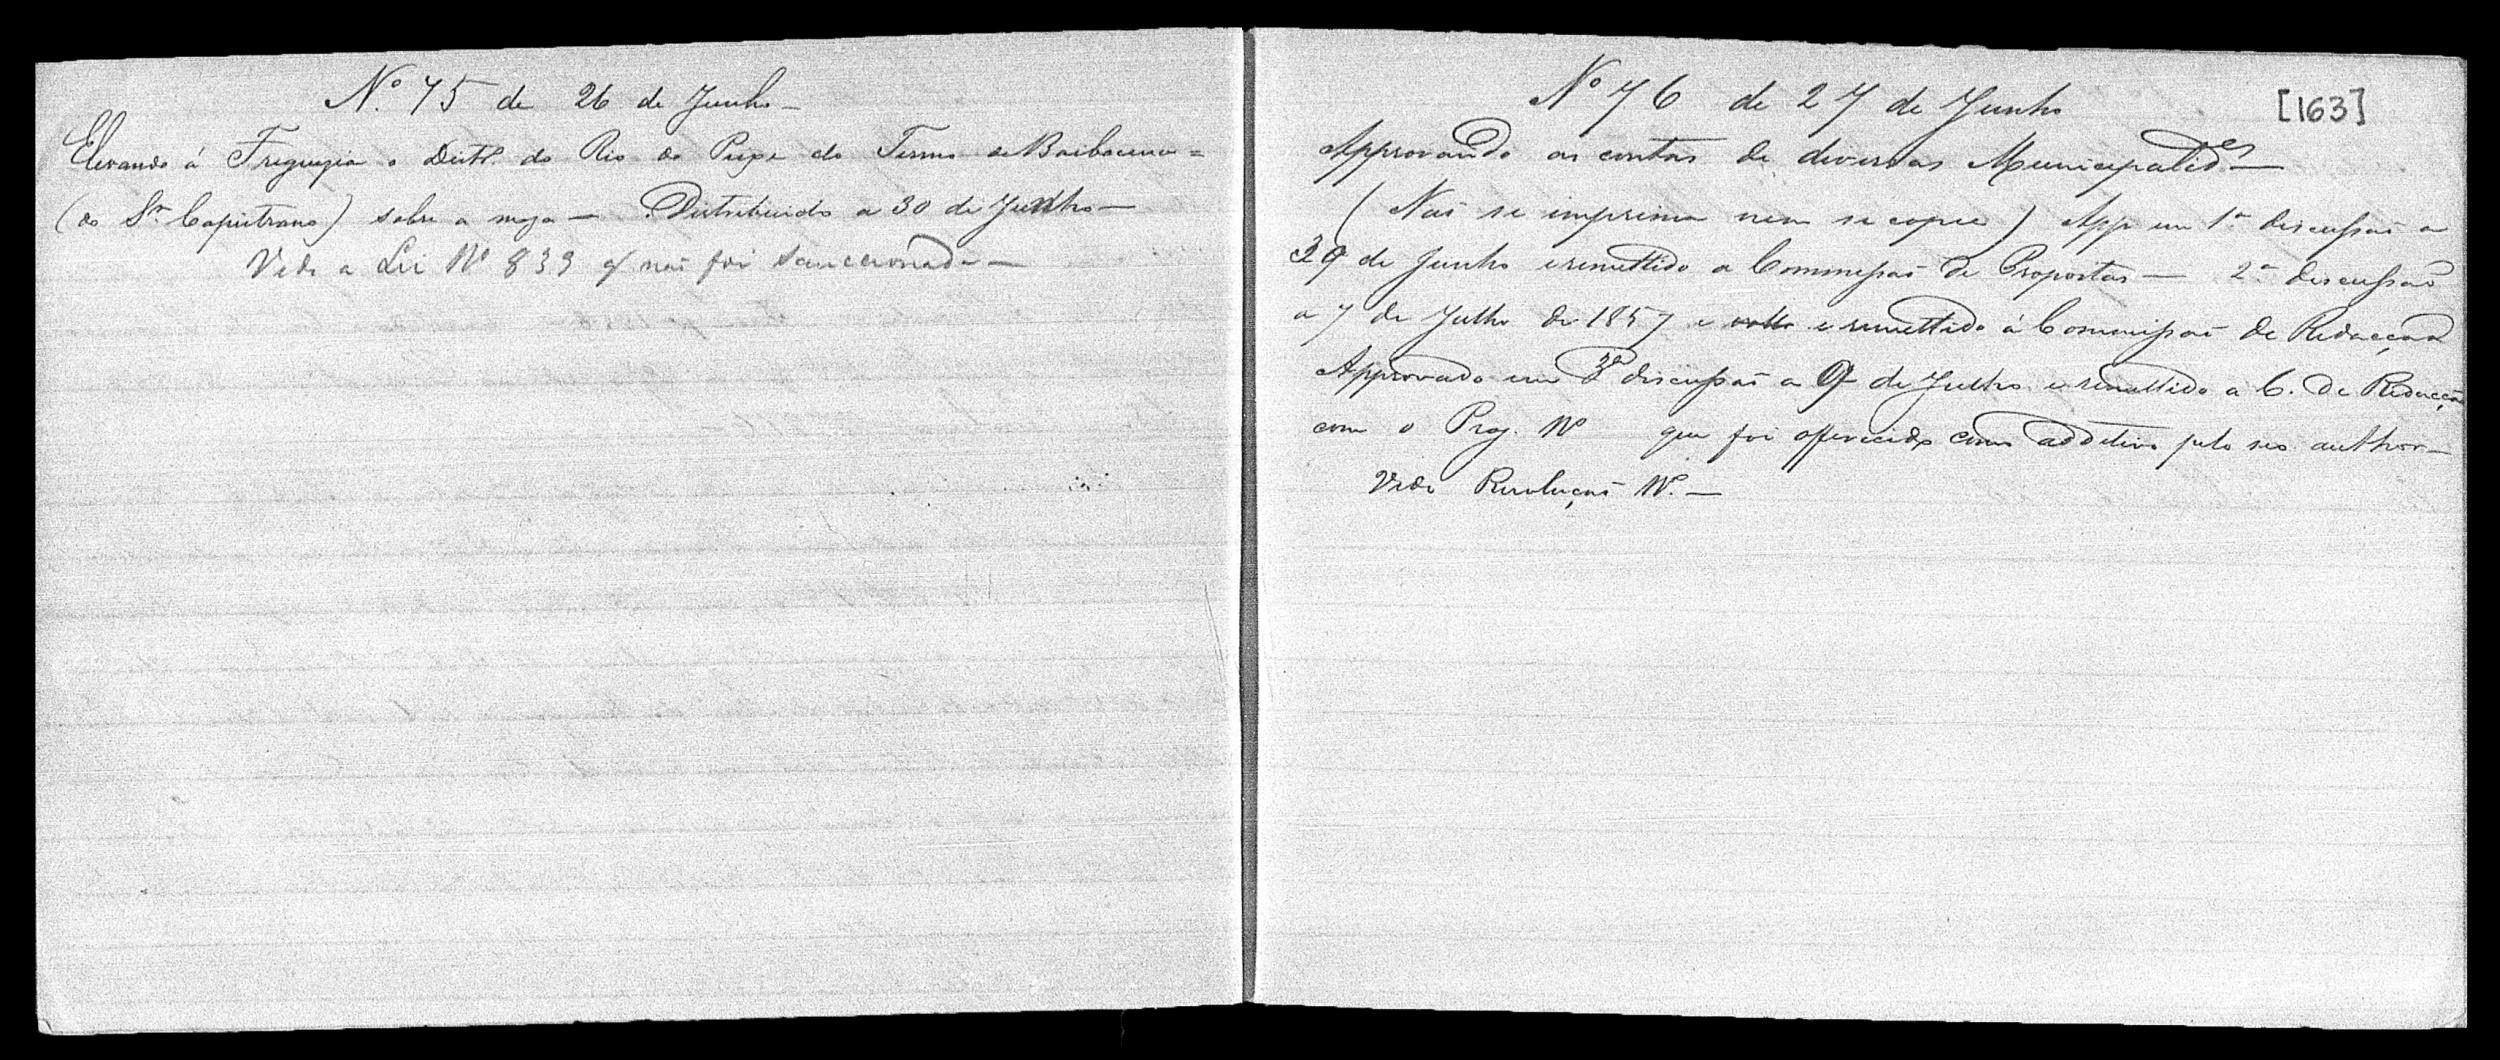 Nº 75 de 26 de Junho —
Elevando á Freguezia o Distº. do Rio do Peixe do Termo de Barbacena =
(do Sr. Capistrano) sobre a mesa — Distribuido a 30 de Junho —
Vide a Lei Nº 839 q' naõ foi Sanccionada —
Nº 76 de 27 de Junho
[163]
Approvando as contas de diversas Municipalides —
(Naõ se imprima nem se copie) App em 1ª discussaõ a
30 de Junho e remettido a Commissaõ de Propostas — 2ª discussaõ
a 7 de Julho de 1857 e remettido á Commissaõ de Redacçaõ
Approvado em 3ª discussaõ a 9 de Julho e remettido a C. de Redacçaõ
com o Proj. Nº que foi offerecido como additivo pelo seo author —
Vide Resoluçaõ Nº. —